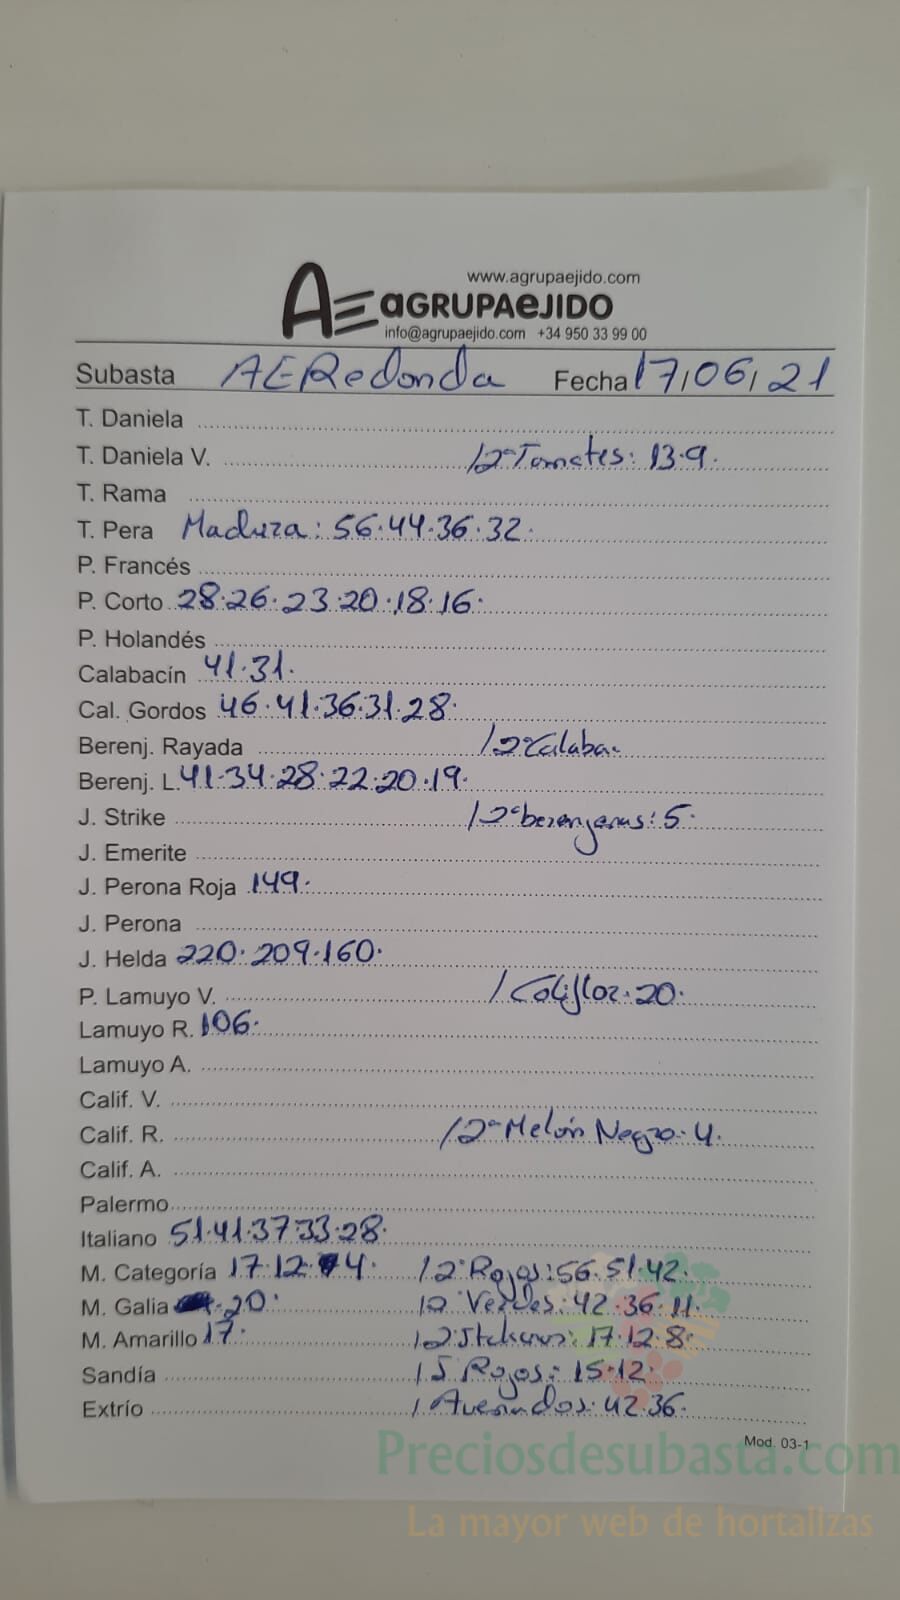 www.agrupaejido.com
AE aGRUPAeJIDO
info@agrupaejido.com +34 950 33 99 00
Subasta AE Redonda Fecha 17/06/21
T. Daniela
T. Daniela V. / 2ª Tomates: 13·9·
T. Rama
T. Pera Madura: 56·44·36·32·
P. Francés
P. Corto 28·26·23·20·18·16·
P. Holandés
Calabacín 41·31·
Cal. Gordos 46·41·36·31·28·
Berenj. Rayada / 2ª Calaba·
Berenj. L. 41·34·28·22·20·19·
J. Strike / 2ª berenjenas: 5·
J. Emerite
J. Perona Roja 149·
J. Perona
J. Helda 220·209·160·
P. Lamuyo V. / Coliflor·20·
Lamuyo R. 106·
Lamuyo A.
Calif. V.
Calif. R. / 2ª Melón Negro·4·
Calif. A.
Palermo
Italiano 51·41·37·33·28·
M. Categoría 17·12·4· / 2ª Rojos: 56·51·42·
M. Galia 20· / 2ª Verdes: 42·36·11·
M. Amarillo 17· / 2ª 17·12·8·
Sandía / S Rojos: 15·12·
Extrío / Averiados: 42·36·
Mod. 03-1
Preciosdesubasta.com
La mayor web de hortalizas